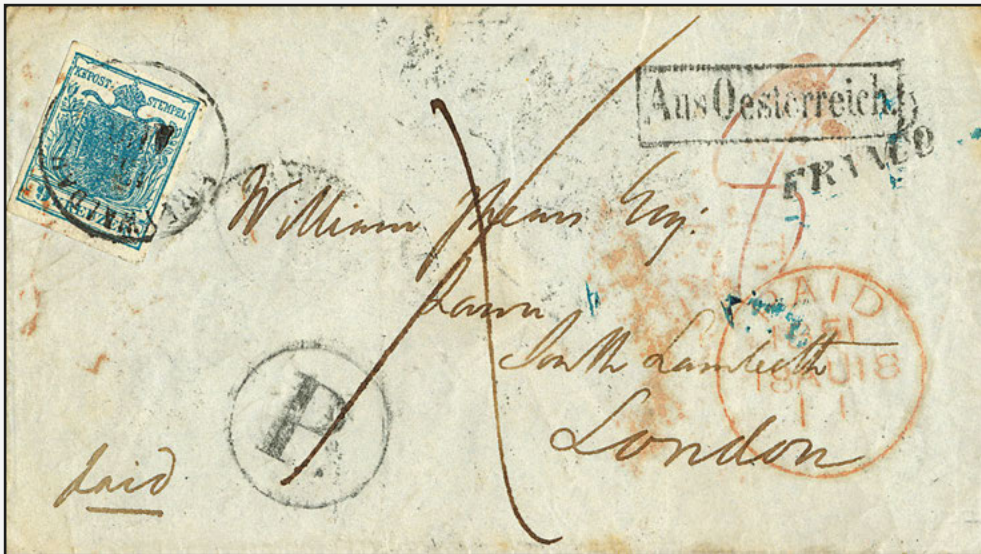 KKPOST-
STEMPEL
Aus Oesterreich
FRANCO
William Esq:
Lawn
South Lambeth
London
PAID
1851
18AU18
P.
paid